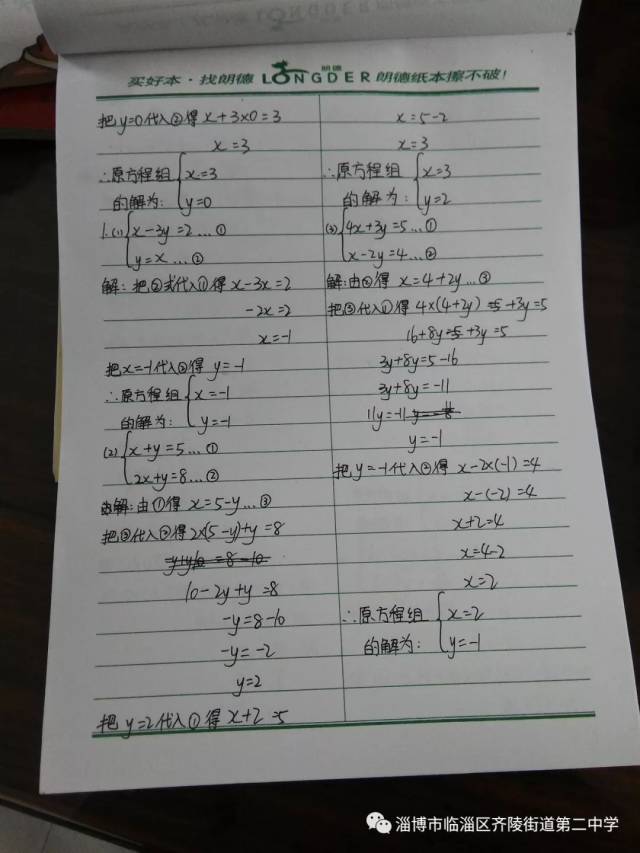 买好本·找朗德 LONGDER 朗德 朗德纸本擦不破!
把y=0代入②得x+3×0=3
x=3
∴原方程组 x=3
的解为: y=0
1.(1) x-3y=2...①
y=x...②
解:把②式代入①得x-3x=2
-2x=2
x=-1
把x=-1代入②得y=-1
∴原方程组 x=-1
的解为: y=-1
(2) x+y=5...①
2x+y=8...②
解:由①得x=5-y...③
把③代入②得2×(5-y)+y=8
10-2y+y=8
-y=8-10
-y=-2
y=2
把y=2代入①得x+2=5
x=5-2
x=3
∴原方程组 x=3
的解为: y=2
(3) 4x+3y=5...①
x-2y=4...②
解:由②得x=4+2y...③
把③代入①得4×(4+2y)+3y=5
16+8y+3y=5
3y+8y=5-16
3y+8y=-11
11y=-11
y=-1
把y=-1代入②得x-2×(-1)=4
x-(-2)=4
x+2=4
x=4-2
x=2
∴原方程组 x=2
的解为: y=-1
淄博市临淄区齐陵街道第二中学